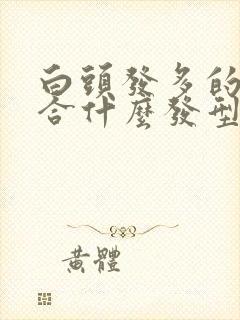 白頭發多的
合什麼發型
黃體